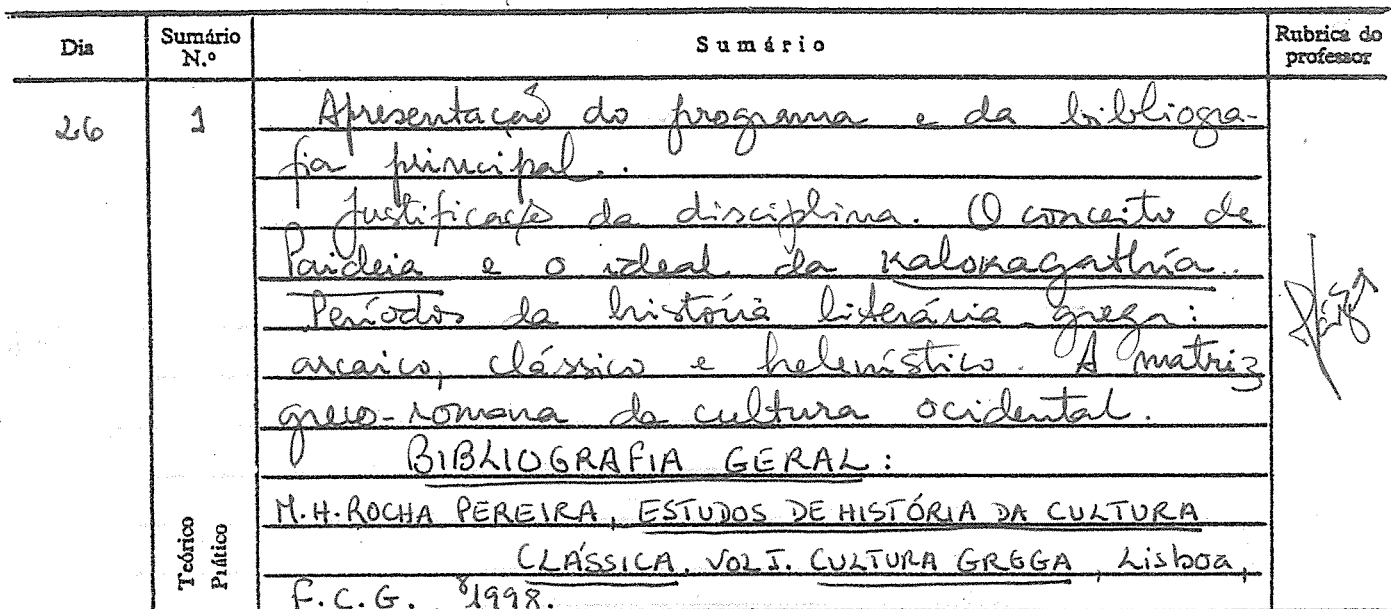 Dia Sumário N.º Sumário Rubrica do professor
26 1 Apresentação do programa e da bibliogra-
fia principal.
Justificação da disciplina. O conceito de
Paideia e o ideal da kalokagathía.
Períodos da história literária grega:
arcaico, clássico e helenístico. A matriz
greco-romana da cultura ocidental.
BIBLIOGRAFIA GERAL:
M.H. ROCHA PEREIRA, ESTUDOS DE HISTÓRIA DA CULTURA
CLÁSSICA. VOL I. CULTURA GREGA, Lisboa,
F.C.G. ⁸1998.
Teórico
Prático